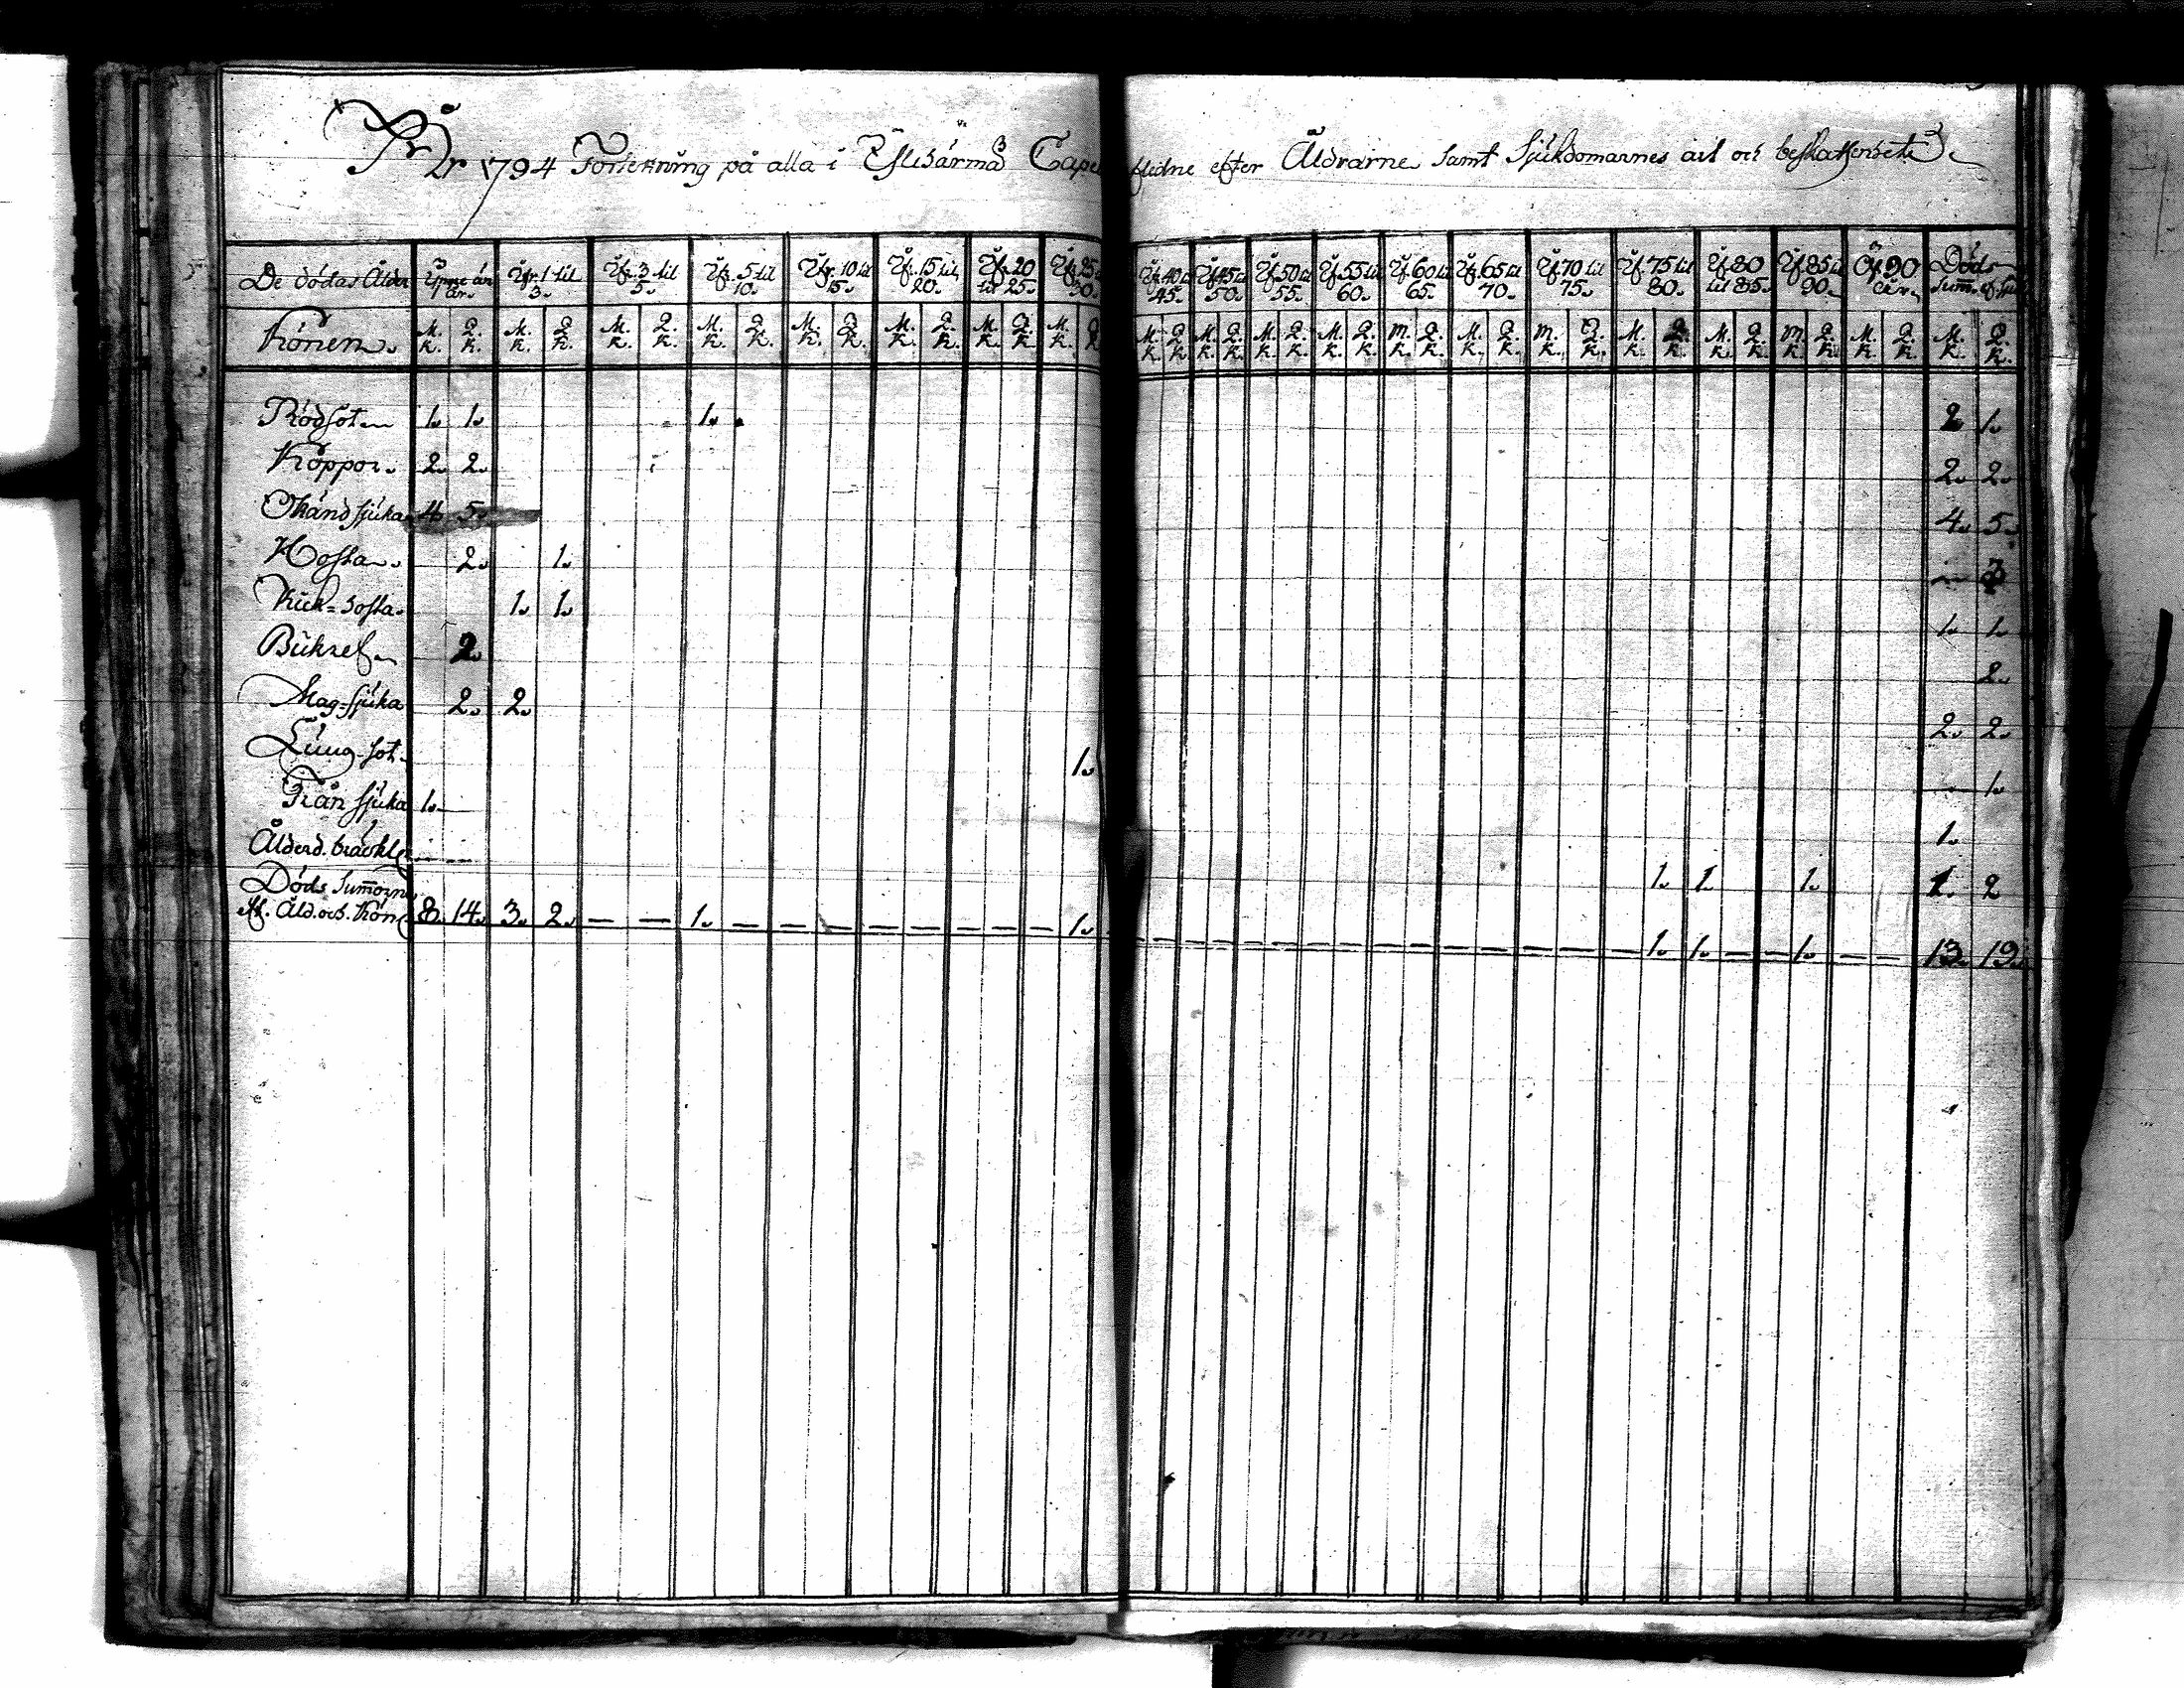 År 1794 Förtekning på alla i Cape flidne efter Åldrarne samt Sjukdomarnes art och beskaffenhet
De dödas Ålder 1 år. Åf. 1 til 3. Åf. 3 til 5. Åf. 5 til 10. Åf. 10 til 15. Åf. 15 til 20. Åf. 20 til 25. Åf. 25 30. Åf. 40 til 45. Åf. 45 til 50. Åf. 50 til 55. Åf. 55 til 60. Åf. 60 til 65. Åf. 65 til 70. Åf. 70 til 75. Åf. 75 til 80. Åf. 80 til 85. Åf. 85 til 90. Öf. 90 år. Döds summ.
Könen. M. K. Q. K. M. K. Q. K. M. K. Q. K. M. K. Q. K. M. K. Q. K. M. K. Q. K. M. K. Q. K. M. K. Q. M. K. Q. K. M. K. Q. K. M. K. Q. K. M. K. Q. K. M. K. Q. K. M. K. Q. K. M. K. Q. K. M. K. Q. K. M. K. Q. K. M. K. Q. K. M. K. Q. K. M. K. Q. K.
Rödsot 1. 1. 1. 2 1.
Koppor. 2. 2. 2. 2.
Okänd sjuka 4 5. 4. 5.
Hosta. 2. 1. — 3
Kik=hosta. 1. 1. 1. 1.
Bukref 2. 2.
Mag-sjuka 2. 2. 2. 2.
Lung-sot. 1. — 1.
Trån sjuka 1. 1.
Ålderd. bräckl. 1. 1. 1. 1. 2
Döds Summorne
eft. Åld. och Kön 8. 14. 3. 2. — — 1. — — — — — — — — 1. — — — — — — — — — — — — — — — 1. 1. — — 1. — — 13. 19.